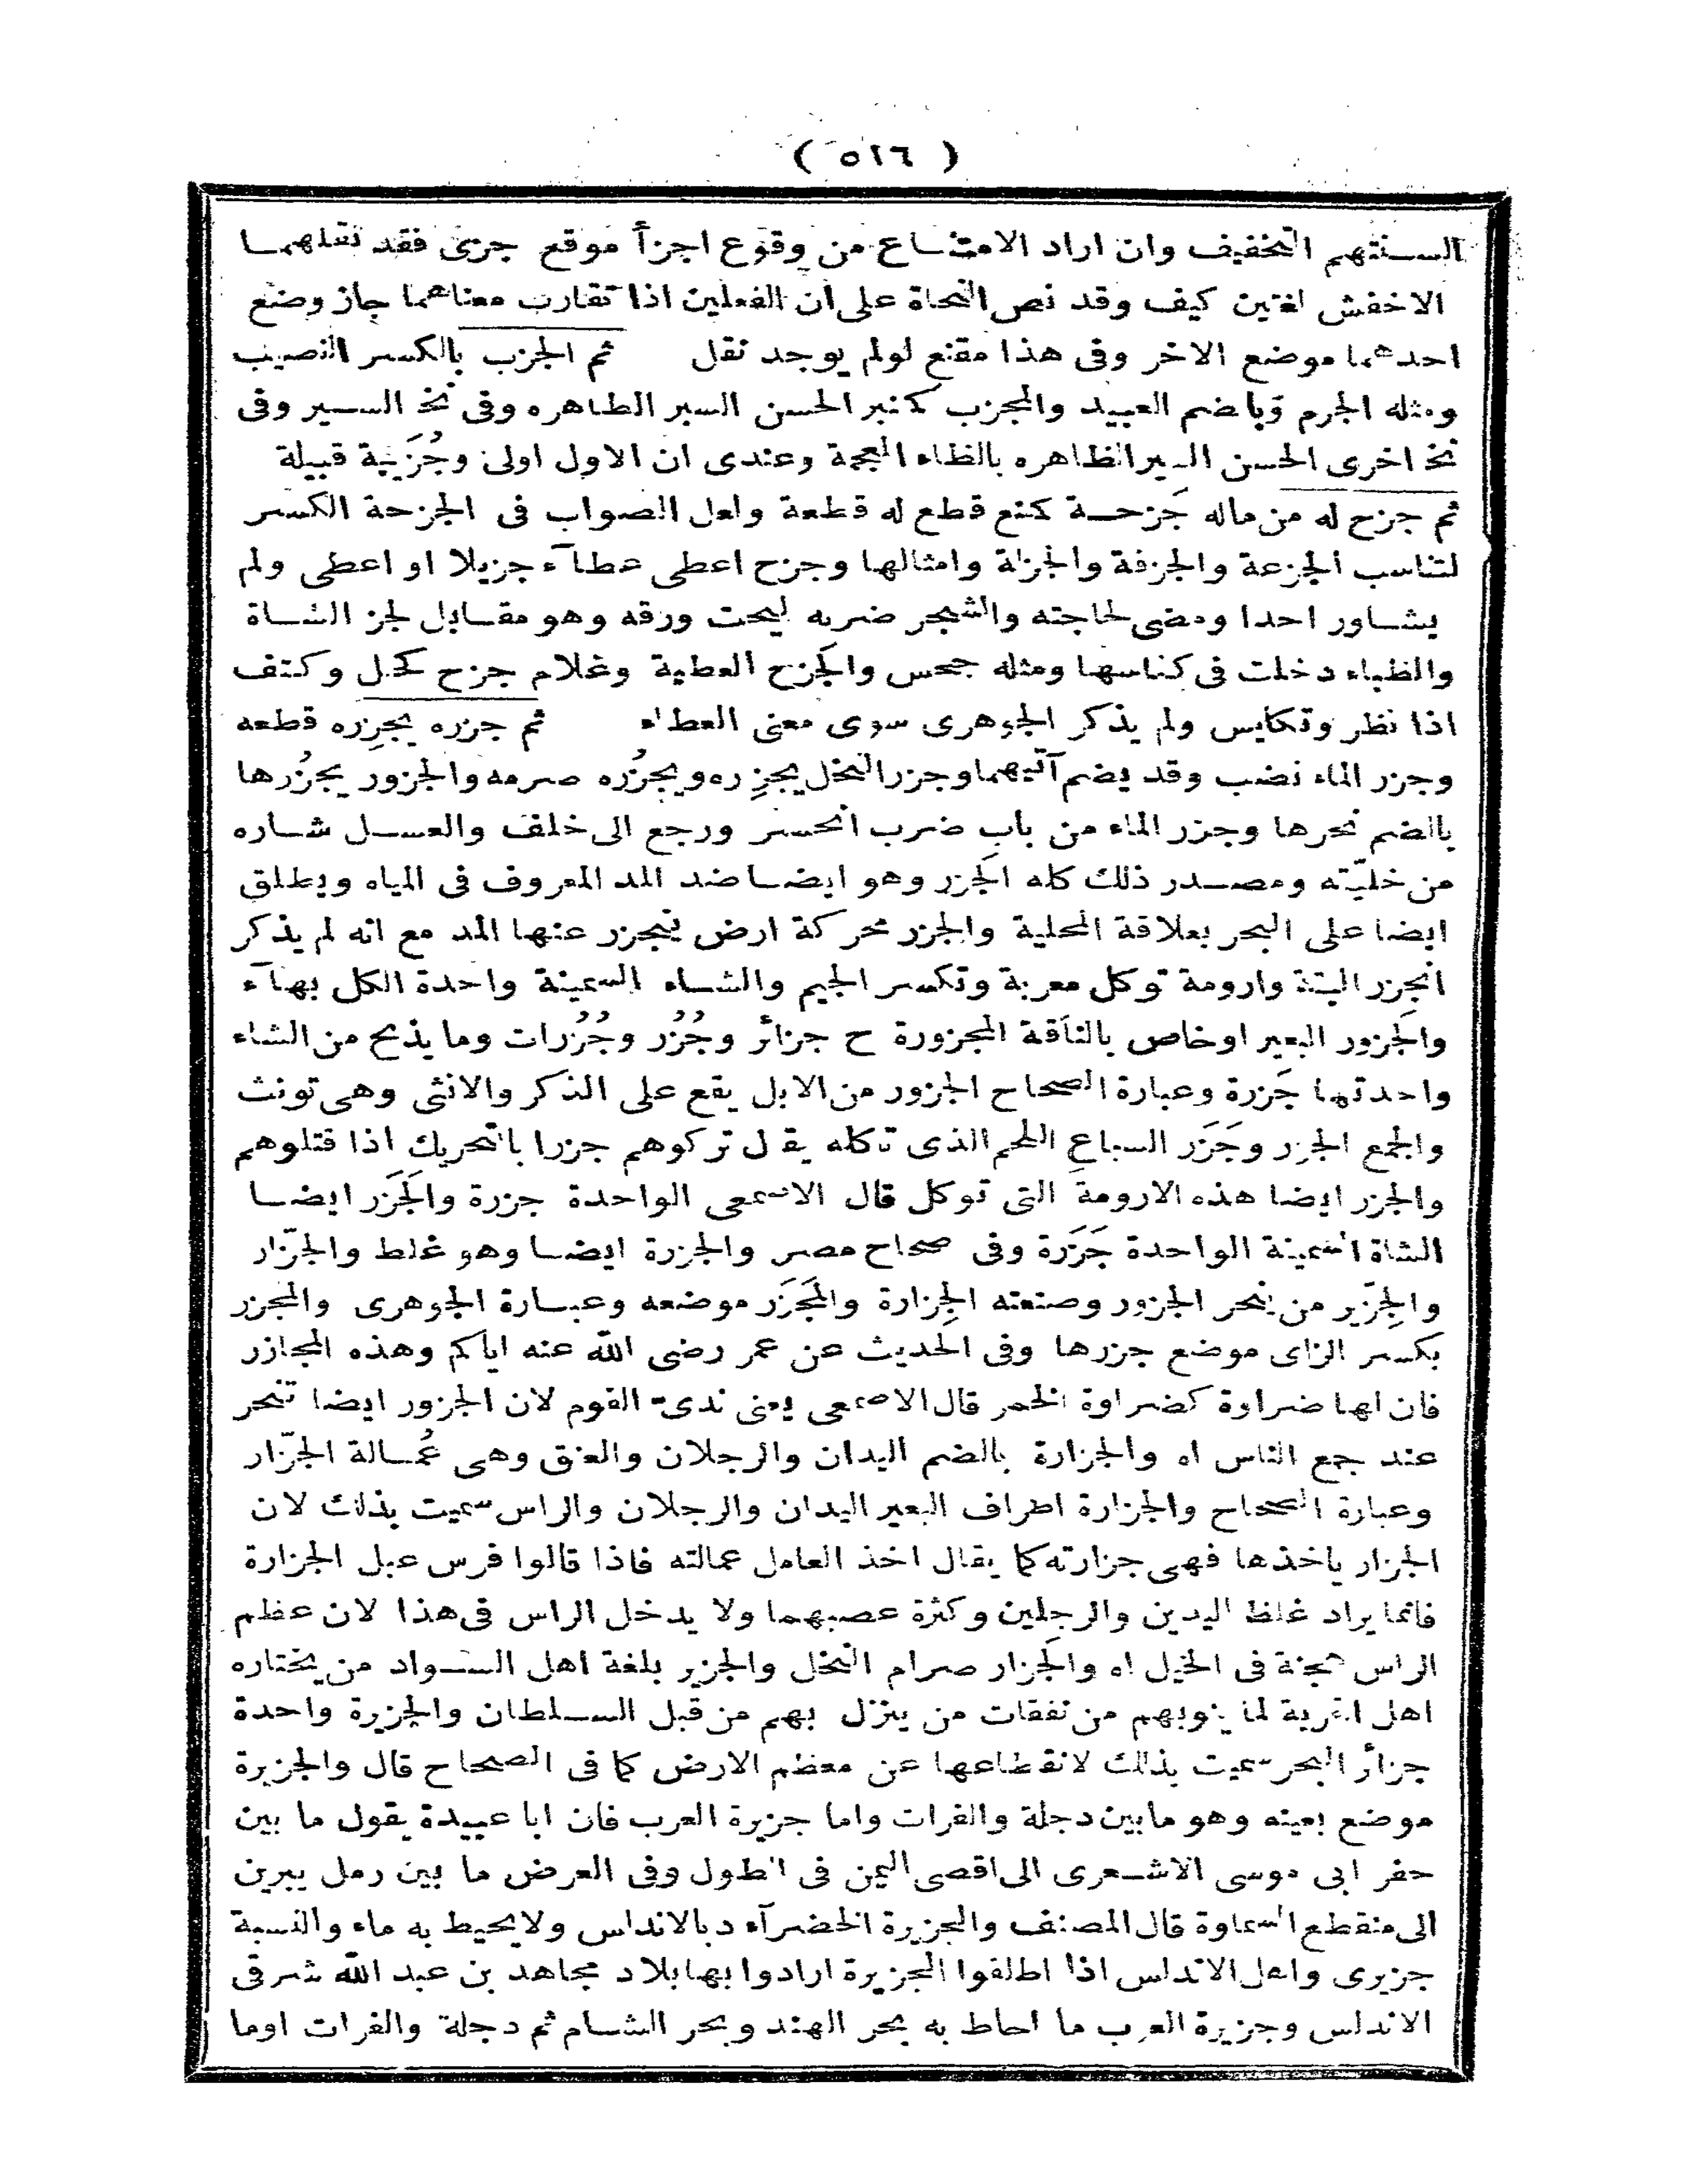 ( ٥١٦ )
السنتهم التخفيف وان اراد الامتناع من وقوع اجزأ موقع جزى فقد نقلهما
الاخفش لغتين كيف وقد نص النحاة على ان الفعلين اذا تقارب معناهما جاز وضع
احدهما موضع الاخر وفى هذا مقنع لولم يوجد نقل ثم الجزب بالكسر النصيب
ومثله الجرم وبالضم العبيد والمجزب كمنبر الحسن السبر الطاهره وفى نخ السير وفى
نخ اخرى الحسن السير الظاهره بالظاء المعجمة وعندى ان الاول اولى وجُزَيبة قبيلة
ثم جزح له من ماله جَزحة كمنع قطع له قطعة ولعل الصواب فى الجزحة الكسر
لتناسب الجزعة والجزفة والجزلة وامثالها وجزح اعطى عطآء جزيلا او اعطى ولم
يشاور احدا ومضى لحاجته والشجر ضربه ليحت ورقه وهو مقابل لجز الشاة
والظباء دخلت فى كناسها ومثله جحس والجَزح العطية وغلام جزح كجل وكتف
اذا نظر وتكايس ولم يذكر الجوهرى سوى معنى العطاء ثم جزره يجزِره قطعه
وجزر الماء نضب وقد يضم آتيهما وجزر النخل يجزِره ويجزُره صرمه والجزور يجزُرها
بالضم نحرها وجزر الماء من باب ضرب انحسر ورجع الى خلف والعسل شاره
من خليّته ومصدر ذلك كله الجَزر وهو ايضا ضد المد المعروف فى المياه ويطلق
ايضا على البحر بعلاقة المحلية والجزر محركة ارض ينجزر عنها المد مع انه لم يذكر
انجزر البتة وارومة توكل معربة وتكسر الجيم والشاء السمينة واحدة الكل بهآء
والجَزور البعير اوخاص بالناقة المجزورة ج جزائر وجُزُر وجُزُرات وما يذبح من الشاء
واحدتها جَزرة وعبارة الصحاح الجزور من الابل يقع على الذكر والانثى وهى تونث
والجمع الجزر وجَزَر السباعِ اللحم الذى تاكله يقال تركوهم جزرا بالتحريك اذا قتلوهم
والجزر ايضا هذه الارومة التى توكل قال الاصمعى الواحدة جزرة والجَزَر ايضا
الشاة السمينة الواحدة جَزَرة وفى صحاح مصر والجزرة ايضا وهو غلط والجزّار
والجِزّير من ينحر الجزور وصنعته الجِزارة والمَجزَر موضعه وعبارة الجوهرى والمجزر
بكسر الزاى موضع جزرها وفى الحديث عن عمر رضى الله عنه اياكم وهذه المجازر
فان لها ضراوة كضراوة الخمر قال الاصمعى يعنى ندىّ القوم لان الجزور ايضا تنحر
عند جمع الناس اه والجزارة بالضم اليدان والرجلان والعنق وهى عُمالة الجزّار
وعبارة الصحاح والجزارة اطراف البعير اليدان والرجلان والراس سميت بذلك لان
الجزار ياخذها فهى جزارته كما يقال اخذ العامل عمالته فاذا قالوا فرس عبل الجزارة
فانما يراد غلظ اليدين والرجلين وكثرة عصبهما ولا يدخل الراس فى هذا لان عظم
الراس هجنة فى الخيل اه والجَزار صرام النخل والجزير بلغة اهل السواد من يختاره
اهل القرية لما ينوبهم من نفقات من ينزل بهم من قبل السلطان والجزيرة واحدة
جزائر البحر سميت بذلك لانقطاعها عن معظم الارض كما فى الصحاح قال والجزيرة
موضع بعينه وهو مابين دجلة والفرات واما جزيرة العرب فان ابا عبيدة يقول ما بين
حفر ابى موسى الاشعرى الى اقصى اليمن فى الطول وفى العرض ما بين رمل يبرين
الى منقطع السماوة قال المصنف والجزيرة الخضرآء د بالاندلس ولايحيط به ماء والنسبة
جزيرى واهل الاندلس اذا اطلقوا الجزيرة ارادوا بها بلاد مجاهد بن عبد الله شرقى
الاندلس وجزيرة العرب ما احاط به بحر الهند وبحر الشام ثم دجلة والفرات اوما